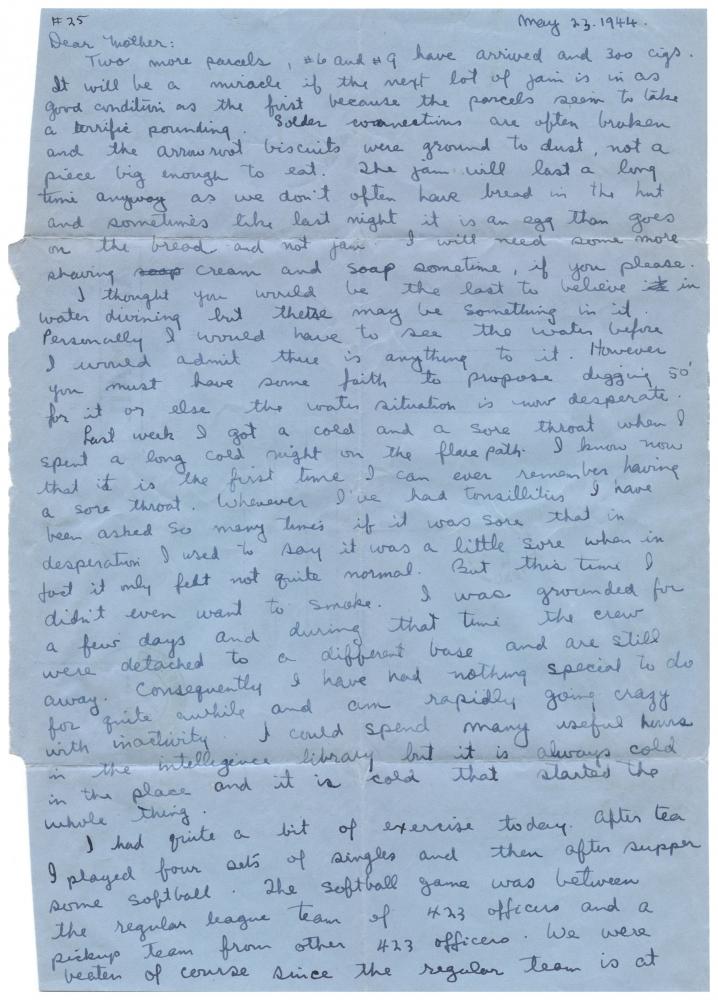 #25 May 23. 1944.
Dear Mother:
Two more parcels, #6 and #9 have arrived and 300 cigs.
It will be a miracle if the next lot of jam is in as
good condition as the first because the parcels seem to take
a terrific pounding. Solder connections are often broken
and the arrowroot biscuits were ground to dust, not a
piece big enough to eat. The jam will last a long
time anyway as we don't often have bread in the hut
and sometimes like last night it is an egg than goes
on the bread and not jam. I will need some more
shaving soap cream and soap sometime, if you please.
I thought you would be the last to believe it in
water divining but there may be something in it.
Personally I would have to see the water before
I would admit there is anything to it. However
you must have some faith to propose digging 50'
for it or else the water situation is now desperate.
Last week I got a cold and a sore throat when I
spent a long cold night on the flare path. I know now
that it is the first time I can ever remember having
a sore throat. Whenever I've had tonsillitus I have
been asked so many times if it was sore that in
desperation I used to say it was a little sore when in
fact it only felt not quite normal. But this time I
didn't even want to smoke. I was grounded for
a few days and during that time the crew
were detached to a different base and are still
away. Consequently I have had nothing special to do
for quite awhile and am rapidly going crazy
with inactivity. I could spend many useful hours
in the intelligence library but it is always cold
in the place and it is cold that started the
whole thing.
I had quite a bit of exercise today. After tea
I played four sets of singles and then after supper
some softball. The softball game was between
the regular league team of 423 officers and a
pickup team from other 423 officers. We were
beaten of course since the regular team is at